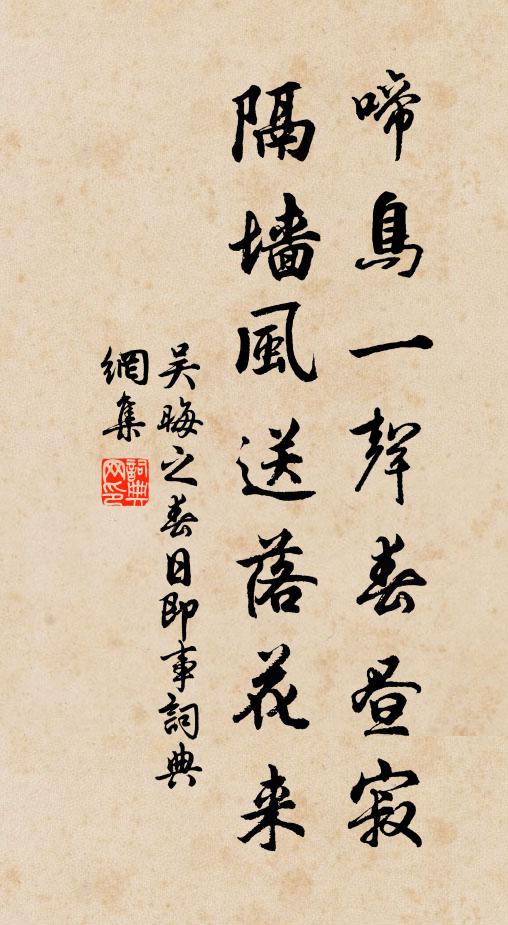 啼鳥一聲春昼寂
隔墙風送落花来
吴晦之春日即事詞典
網集
詞典
网印